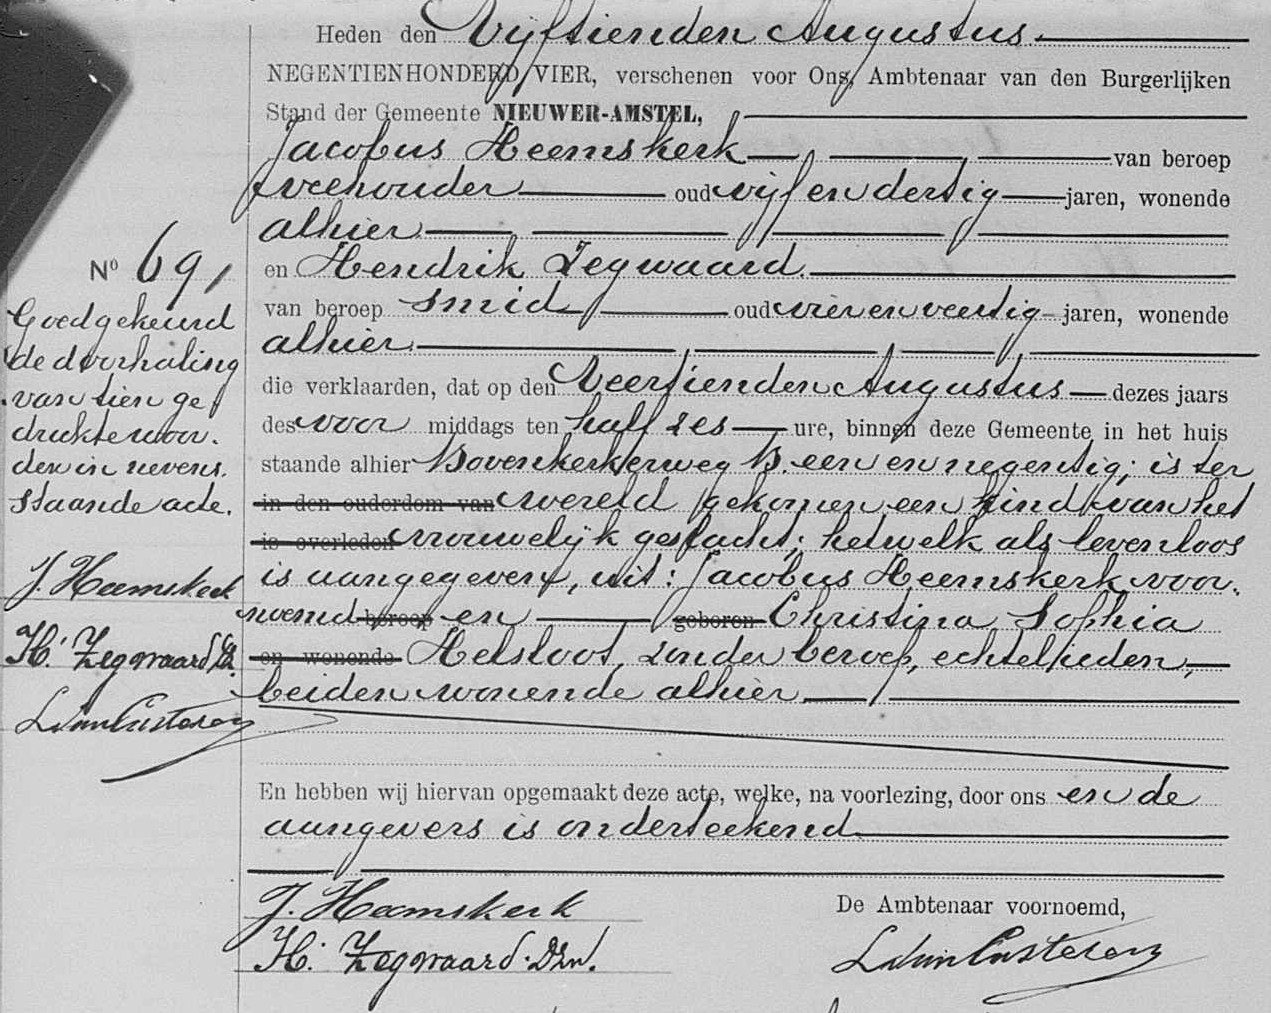 Heden den Vijftienden Augustus
NEGENTIENHONDERD VIER, verschenen voor Ons, Ambtenaar van den Burgerlijken
Stand der Gemeente NIEUWER-AMSTEL,
Jacobus Heemskerk van beroep
veehouder oud vijf en dertig jaren, wonende
alhier
en Hendrik Zegwaard
van beroep smid oud vier en veertig jaren, wonende
alhier
die verklaarden, dat op den Veertienden Augustus dezes jaars
des voor middags ten half zes ure, binnen deze Gemeente in het huis
staande alhier Bovenkerkerweg B. een en negentig; is ter
in den ouderdom van wereld gekomen een kind van het
is overleden vrouwelijk geslacht; hetwelk als levenloos
is aangegeven, uit: Jacobus Heemskerk voor.
noemd beroep en geboren Christina Sophia
en wonende Helsloot, zonder beroep, echtelieden,
beiden wonende alhier
En hebben wij hiervan opgemaakt deze acte, welke, na voorlezing, door ons en de
aangevers is onderteekend
J. Heemskerk
H. Zegwaard. Dzn.
De Ambtenaar voornoemd,
No 69,
Goedgekeurd
de doorhaling
van tien ge
drukte woor.
den in nevens.
staande acte.
J. Heemskerk
H. Zegwaard